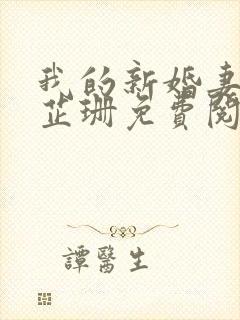 我的新婚妻
芷珊免費閱
譚醫生